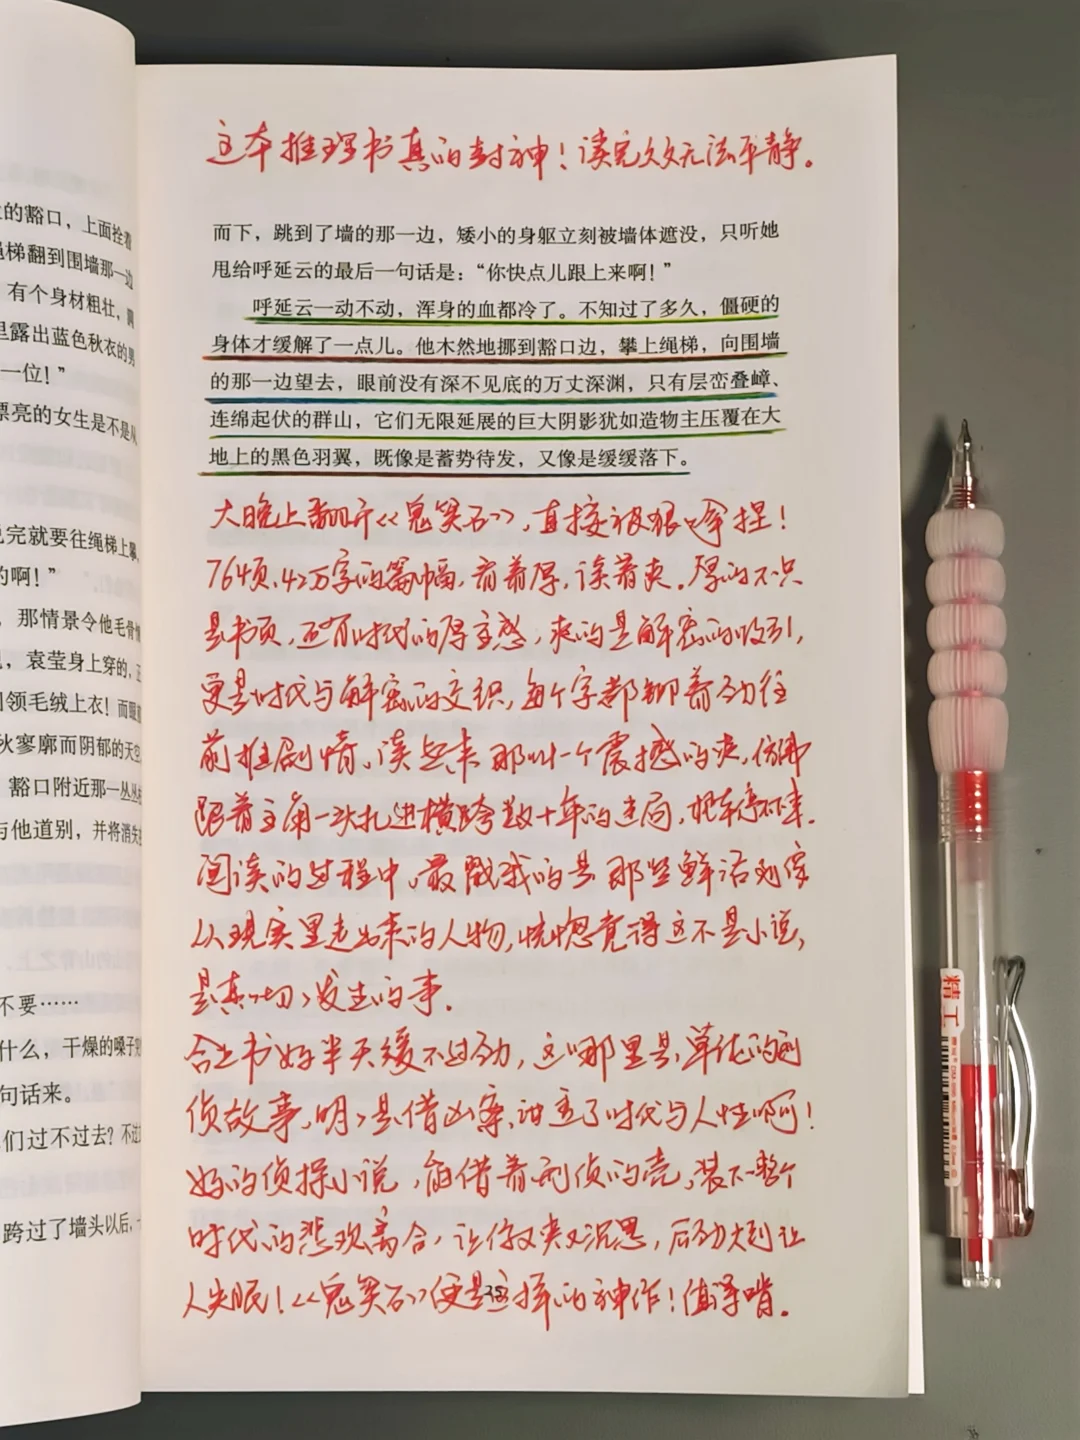 上的豁口，上面拴着
绳梯翻到围墙那一边
有个身材粗壮，
里露出蓝色秋衣的男
一位！”
漂亮的女生是不是从
说完就要往绳梯上攀，
的啊！”
，那情景令他毛骨悚
，袁莹身上穿的，正
领毛绒上衣！而
秋寥廓而阴郁的天空
豁口附近那一丛丛
与他道别，并将消失
不要……
什么，干燥的嗓子
句话来。
们过不过去？不过
跨过了墙头以后，
这本推理书真的封神！读完久久无法平静。
而下，跳到了墙的那一边，矮小的身躯立刻被墙体遮没，只听她
甩给呼延云的最后一句话是：“你快点儿跟上来啊！”
呼延云一动不动，浑身的血都冷了。不知过了多久，僵硬的
身体才缓解了一点儿。他木然地挪到豁口边，攀上绳梯，向围墙
的那一边望去，眼前没有深不见底的万丈深渊，只有层峦叠嶂、
连绵起伏的群山，它们无限延展的巨大阴影犹如造物主压覆在大
地上的黑色羽翼，既像是蓄势待发，又像是缓缓落下。
大晚上翻开《鬼笑石》，直接被狠狠拿捏！
764页、42万字的篇幅，看着厚，读着爽。厚的不只
是书页，还有时代的厚重感，爽的是解密的吸引，
更是时代与解密的交织，每个字都铆着劲往
前推剧情。读起来那叫一个震撼的爽，仿佛
跟着主角一头扎进横跨数十年的迷局，根本停不下来。
阅读的过程中，最戳我的是那些鲜活到像
从现实里走出来的人物，恍惚竟觉得这不是小说，
是真切切发生的事。
合上书好半天缓不过劲，这哪里是单纯的刑
侦故事，明明是借凶案，讲透了时代与人性啊！
好的侦探小说，能借着刑侦的壳，装下整个
时代的悲欢离合，让你又爽又沉思，后劲大到让
人失眠！《鬼笑石》便是这样的神作！值得啃。
精工